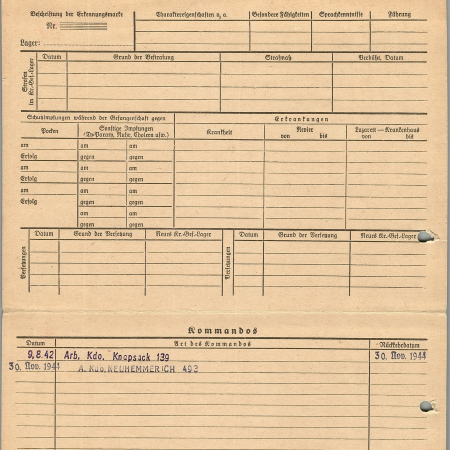 Beschriftung der Erkennungsmarke
Nr.
Lager:
Charaktereigenschaften u. a.
Besondere Fähigkeiten
Sprachkenntnisse
Führung
Strafen im Kr.-Gef.-Lager
Datum
Grund der Bestrafung
Strafmaß
Verbüßt, Datum
Schutzimpfungen während der Gefangenschaft gegen
Erkrankungen
Pocken
Sonstige Impfungen
(Ty-Paraty, Ruhr, Cholera usw.)
Krankheit
Revier
von bis
Lazarett — Krankenhaus
von bis
am am am
Erfolg gegen gegen
am am am
Erfolg gegen gegen
am am am
Erfolg gegen gegen
am am
gegen gegen
Versetzungen
Datum
Grund der Versetzung
Neues Kr.-Gef.-Lager
Versetzungen
Datum
Grund der Versetzung
Neues Kr.-Gef.-Lager
Kommandos
Datum
Art des Kommandos
Rückkehrdatum
9.8.42 Arb. Kdo. Knapsack 139 30. Nov. 1944
30. Nov. 1944 A. Kdo. NEUHEMMERICH 493